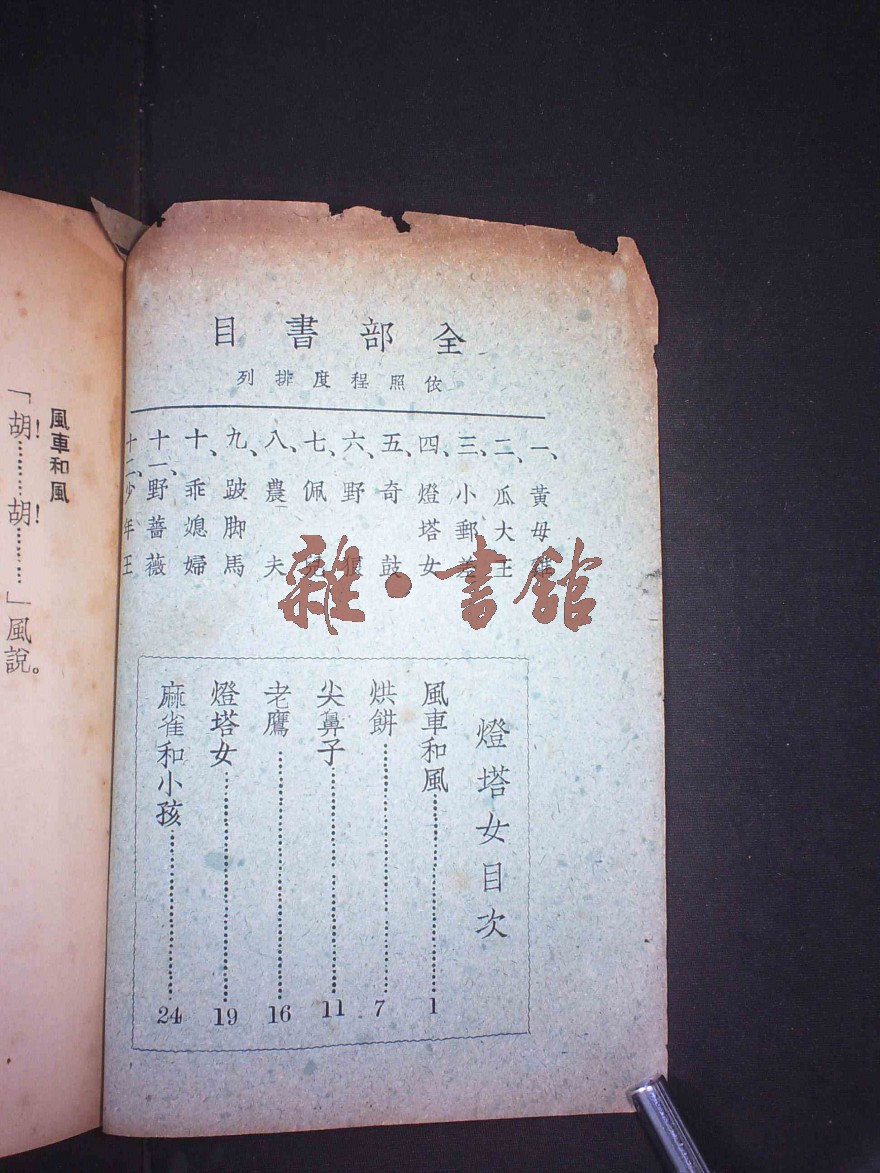 全部書目
依照程度排列
一、黃母雞
二、瓜大王
三、小郵差
四、燈塔女
五、奇鼓
六、野猴
七、佩兒
八、農夫
九、跛脚馬
十、乖媳婦
十一、野薔薇
十二、少年王
燈塔女目次
風車和風 1
烘餅 7
尖鼻子 11
老鷹 16
燈塔女 19
麻雀和小孩 24
風車和風
「胡！………胡！………」風說。
雜·書館